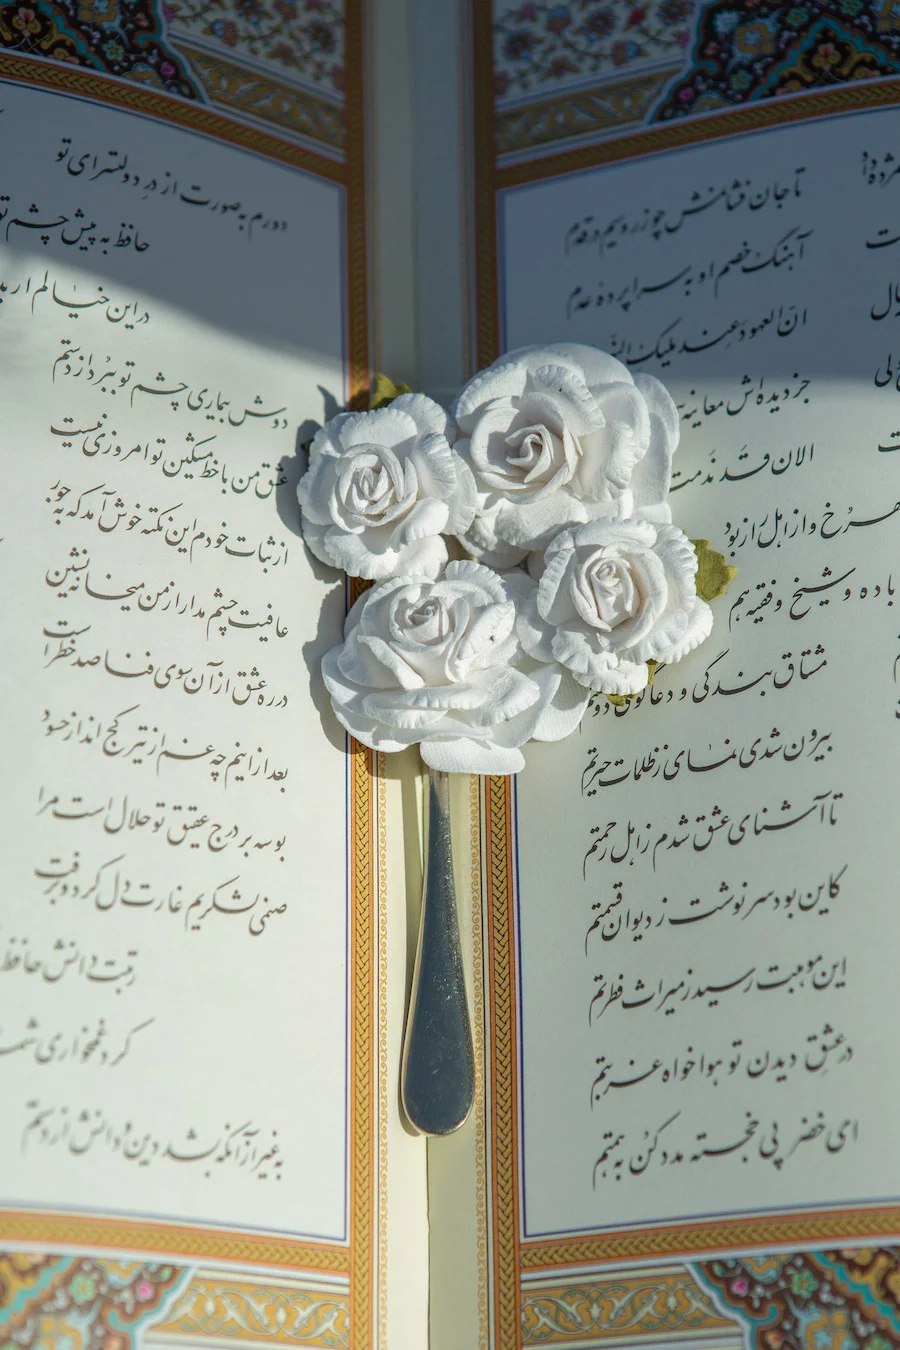 تا جان فشانمش چو زر و سیم در قدم
آهنگ خصم او به سراپرده عدم
انّ العهود عند ملیک
جز دیده‌اش معاینه
الان قد ندمت
و از اهل راز بود
باده و شیخ و فقیه هم
مشتاق بندگی و دعاگوی دولتم
بیرون شدی نمای ز ظلمات حیرتم
تا آشنای عشق شدم ز اهل رحمتم
کاین بود سرنوشت ز دیوان قسمتم
این موهبت رسید ز میراث فطرتم
در عشق دیدن تو هواخواه غربتم
ای خضر پی خجسته مدد کن به همتم
دورم به صورت از در دولتسرای تو
حافظ به پیش چشم تو
در این خیالم ار
دوش بیماری چشم تو ببرد از دستم
عشق من با خط مشکین تو امروزی نیست
از ثبات خودم این نکته خوش آمد که به جور
عافیت چشم مدار از من میخانه نشین
در ره عشق از آن سوی فنا صد خطر است
بعد از اینم چه غم از تیر کج انداز حسود
بوسه بر درج عقیق تو حلال است مرا
صنمی لشکریم غارت دل کرد و برفت
رتبت دانش حافظ
کرد غمخواری
به غیر از آنکه بشد دین و دانش از دستم